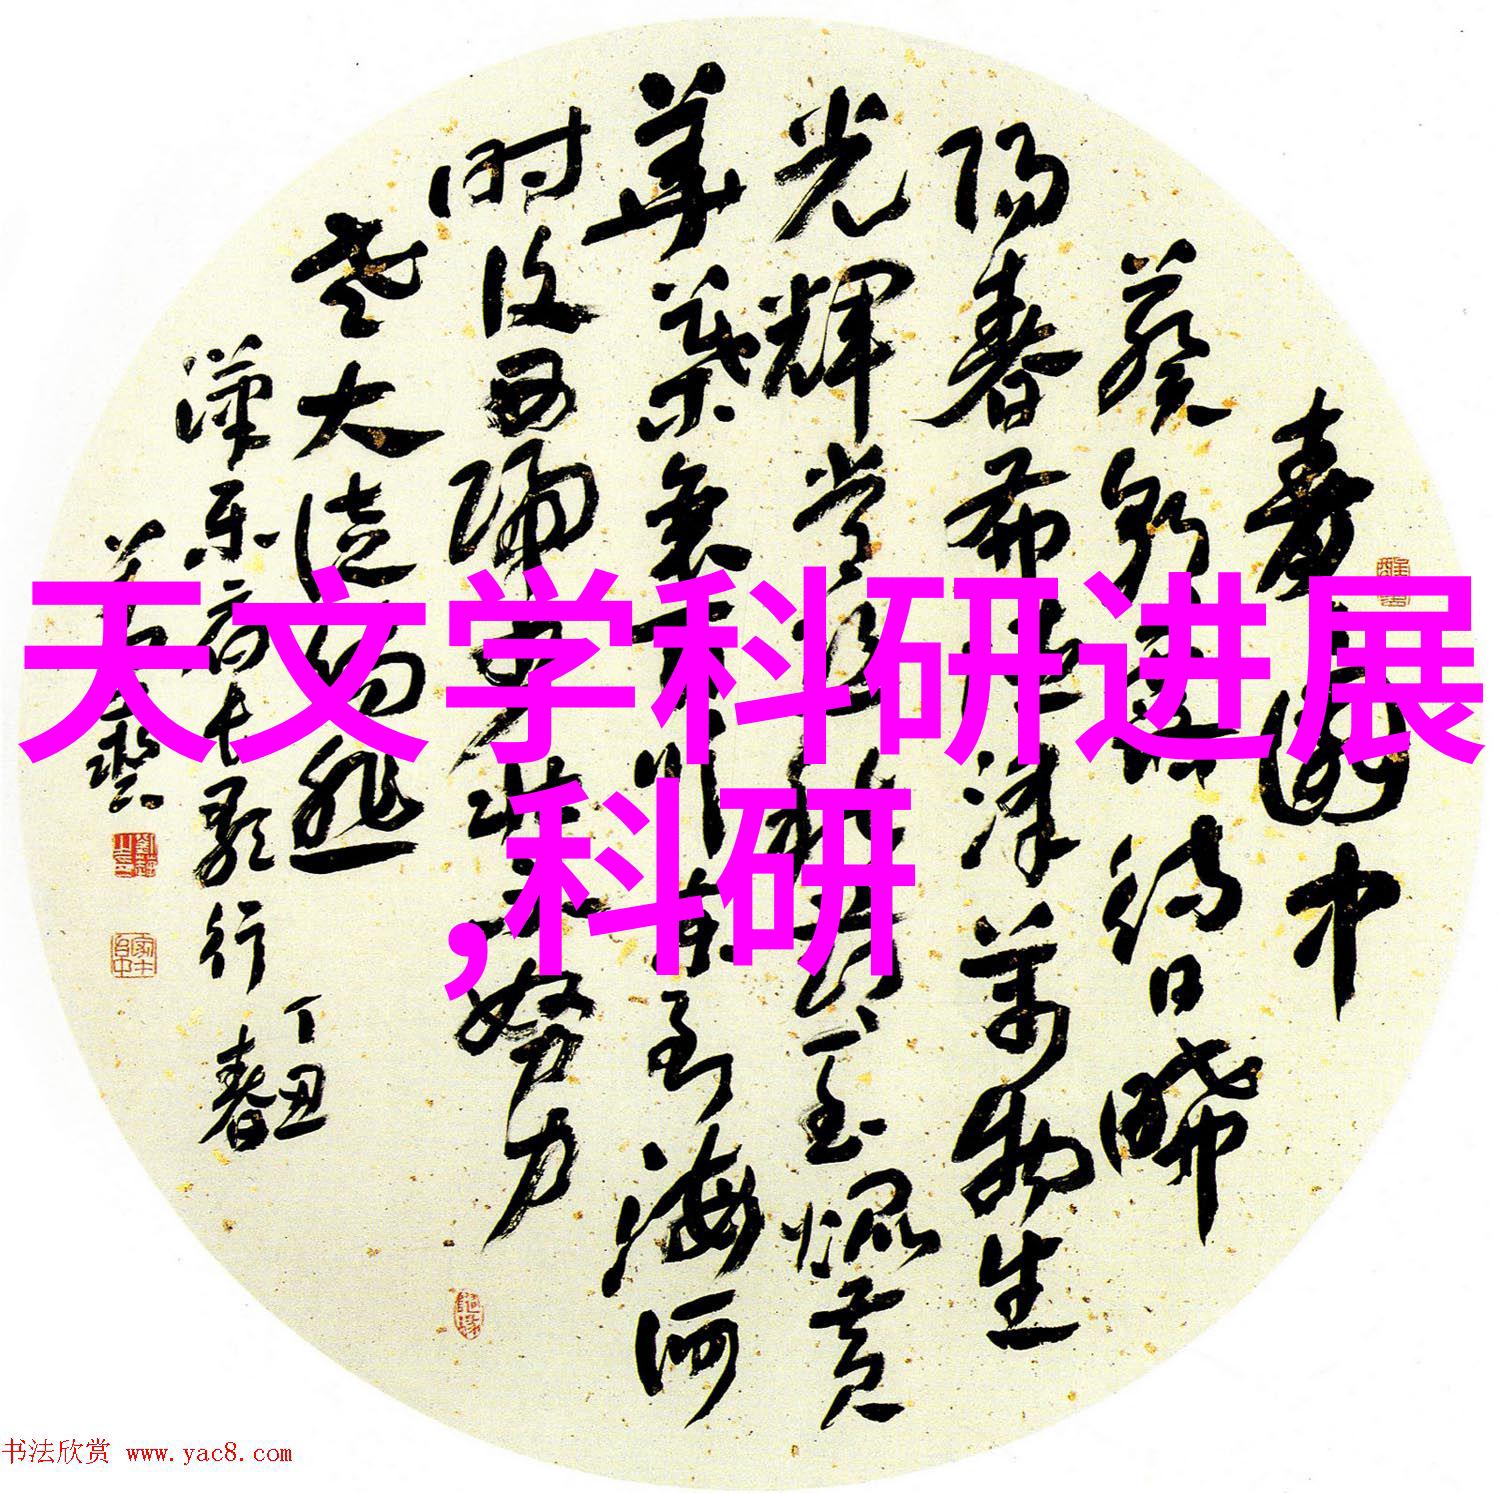 天文学科研进展
,科研
青青園中
葵朝露待日晞
陽春布德澤萬物生
光輝常恐秋節至焜黄
華葉衰百川東到海何
时復西歸少壯不努力
老大徒傷悲
漢樂府長歌行 丁丑春
书法欣赏 www.yac8.com